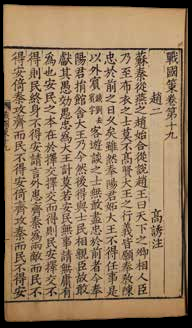 戰國策卷第十九
趙二 高誘注
蘇秦從燕之趙始合從說趙王曰天下之卿相人臣
乃至布衣之士莫不高賢大王之行義皆願奉教陳
忠於前之日久矣雖然奉陽君妬大王不得任事是
以外賓客遊談之士無敢盡忠於前者今奉
陽君捐館舍大王乃今然後得與士民相親臣故敢
獻其愚効愚忠為大王計莫若安民無事請無庸有
為也安民之本在於擇交擇交而得則民安擇交不
得則民終身不得安請言外患齊秦為兩敵而民不
得安倚秦攻齊而民不得安倚齊攻秦而民不得安